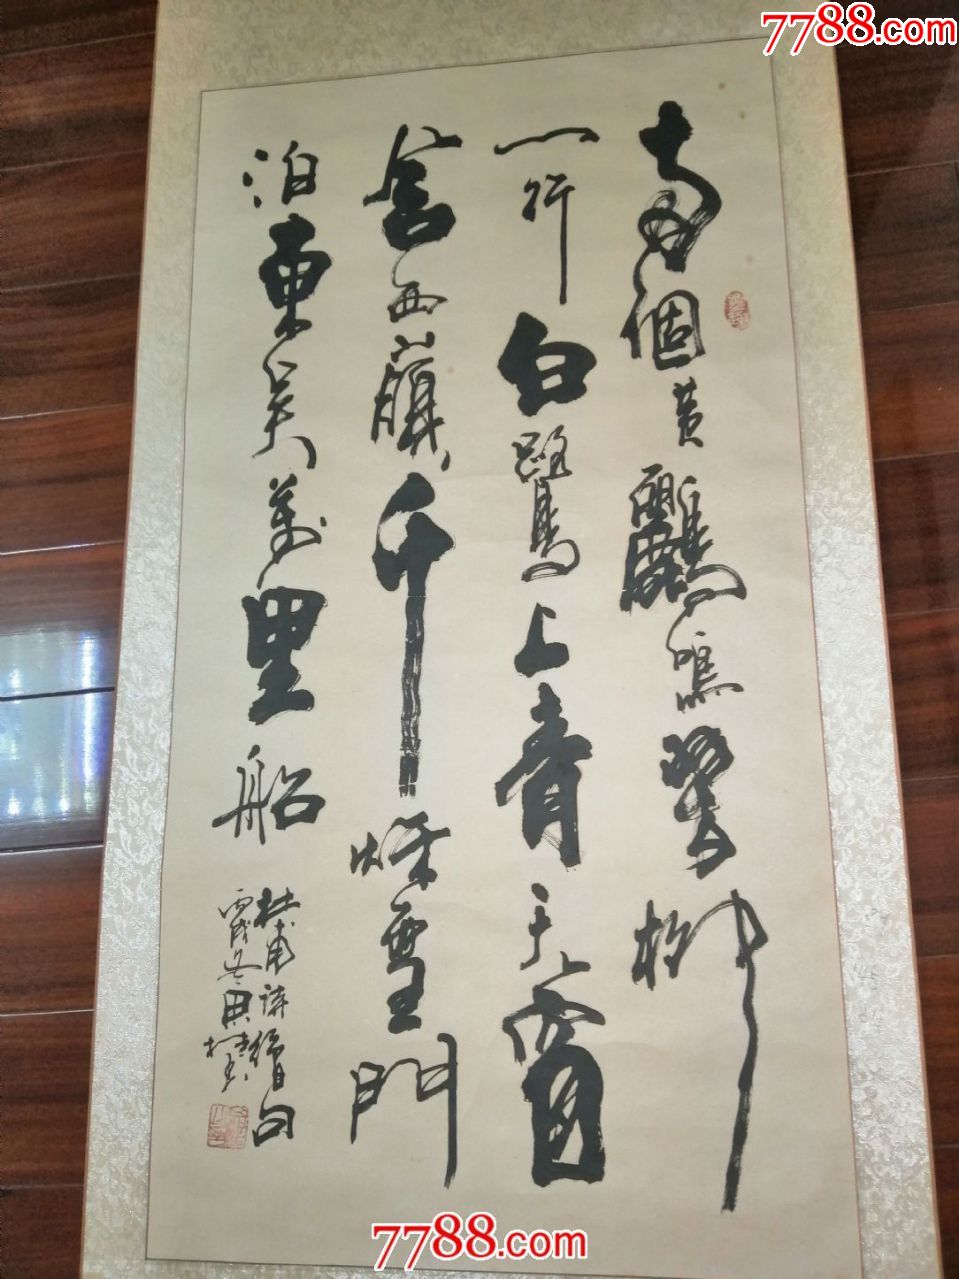 7788.com
两個黄鸝鳴翠柳
一行白鷺上青天窗
含西嶺千秋雪門
泊東吴萬里船
杜甫詩絕句
丙戌冬
7788.com